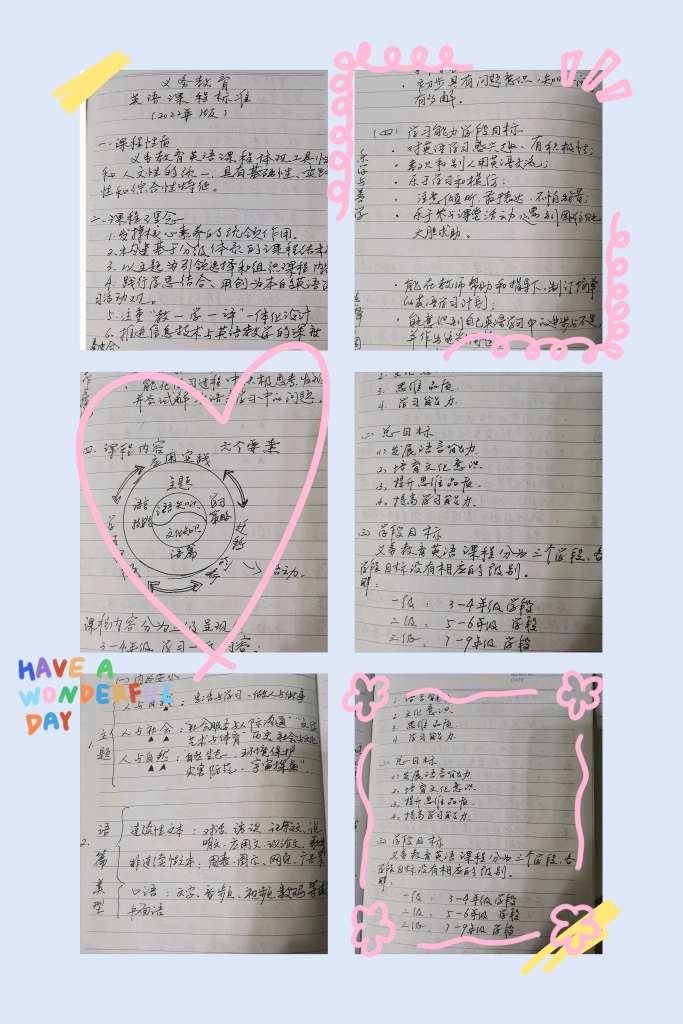 义务教育
英语课程标准
(2022年版)
一.课程性质
义务教育英语课程体现工具性
和人文性的统一,具有基础性、实践
性和综合性特征。
二.课程理念
1.发挥核心素养的统领作用。
2.构建基于分级体系的课程结构
3.以主题为引领选择和组织课程内
4.践行学思结合、用创为本的英语
习活动观。
5.注重“教-学-评”一体化设计
6.推进信息技术与英语教学的深度
初步具有问题意识,
有的解。
(四)学习能力学段目标
·对英语学习感兴趣、有积极性;
·喜欢和别人用英语交流;
·乐于学习和模仿;
·注意倾听,敢于表达,不怕出错;
·乐于参与课堂活动,遇到困难能
大胆求助。
·能在教师帮助和指导下,制订简单
的英语学习计划;
·能意识到自己英语学习中的进步与不足,
并作出
·能在学习过程中积极思考,发现
并尝试解决语言学习中的问题。
四.课程内容 六个要素
应用实践
主题
语言
技能
语言知识
文化知识
学习
策略
语篇
课程内容分为三级呈现
3-4年级 学习一级内容;
HAVE A
WONDERFUL
DAY
3.思维品质
4.学习能力
(二)总目标
1.发展语言能力
2.培育文化意识.
3.提升思维品质.
4.提高学习能力.
(三)学段目标
义务教育英语课程分为三个学段,各
学段目标设有相应的级别。
即:
一级: 3-4年级学段
二级: 5-6年级 学段
三级: 7-9年级 学段
(一)内容要求
1.主题
人与自我:生活与学习、做人与做事
人与社会:社会服务与人际沟通
艺术与体育、历史、社会与文化
人与自然:自然生态、环境保护
灾害防范、宇宙探索”
2.语篇类型
连续性文本:对话、访谈、记叙文、说
明文、应用文、议论文、歌
非连续性文本:图表、图示、网页、广告
口语:文字、音频、视频、数码等
书面语
1.语言能
2.文化意识
3.思维品质
4.学习能力
(二)总目标
1.发展语言能力
2.培育文化意识
3.提升思维品质.
4.提高学习能力.
(三)学段目标
义务教育英语课程分为三个学段,各
学段目标设有相应的级别。
即:
一级: 3-4年级 学段
二级: 5-6年级 学段
三级: 7-9年级 学段